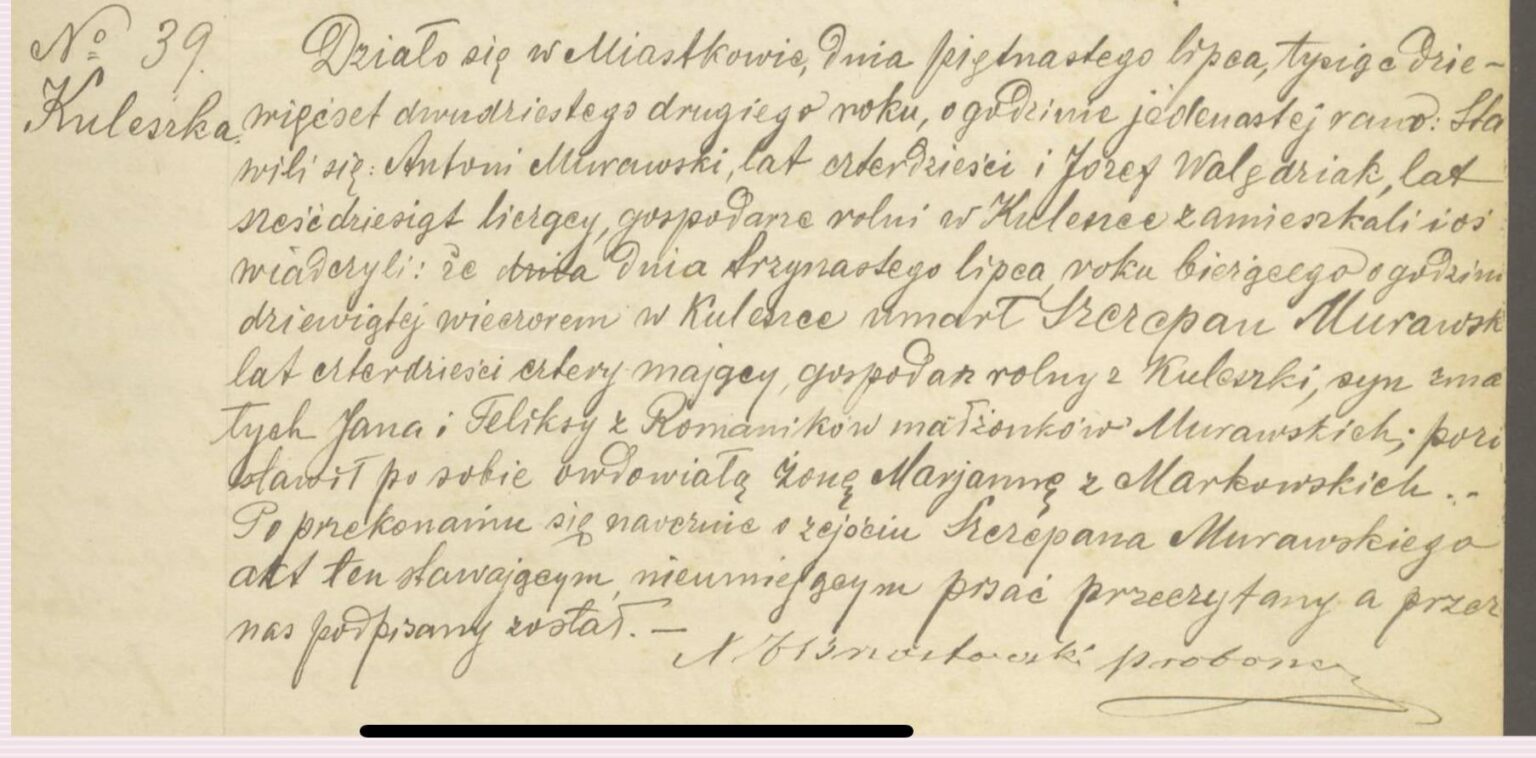 № 39.
Kuleszka.
Działo się w Miastkowie, dnia piętnastego lipca, tysiąc dzie-
więćset dwudziestego drugiego roku, o godzinie jedenastej rano: Sta
wili się: Antoni Murawski, lat czterdzieści i Józef Walędziak, lat
sześćdziesiąt liczący, gospodarze rolni w Kuleszce zamieszkali i oś
wiadczyli: że dnia dnia trzynastego lipca, roku bieżącego o godzini
dziewiątej wieczorem w Kuleszce umarł Szczepan Murawsk
lat czterdzieści cztery mający, gospodarz rolny z Kuleszki, syn zma
łych Jana i Feliksy z Romaników małżonków Murawskich; pozo
stawił po sobie owdowiałą żonę Marjannę z Markowskich..-
Po przekonaniu się naocznie o zejściu Szczepana Murawskiego
akt ten stawającym, nieumiejącym pisać przeczytany a przez
nas podpisany został. —
proboszcz